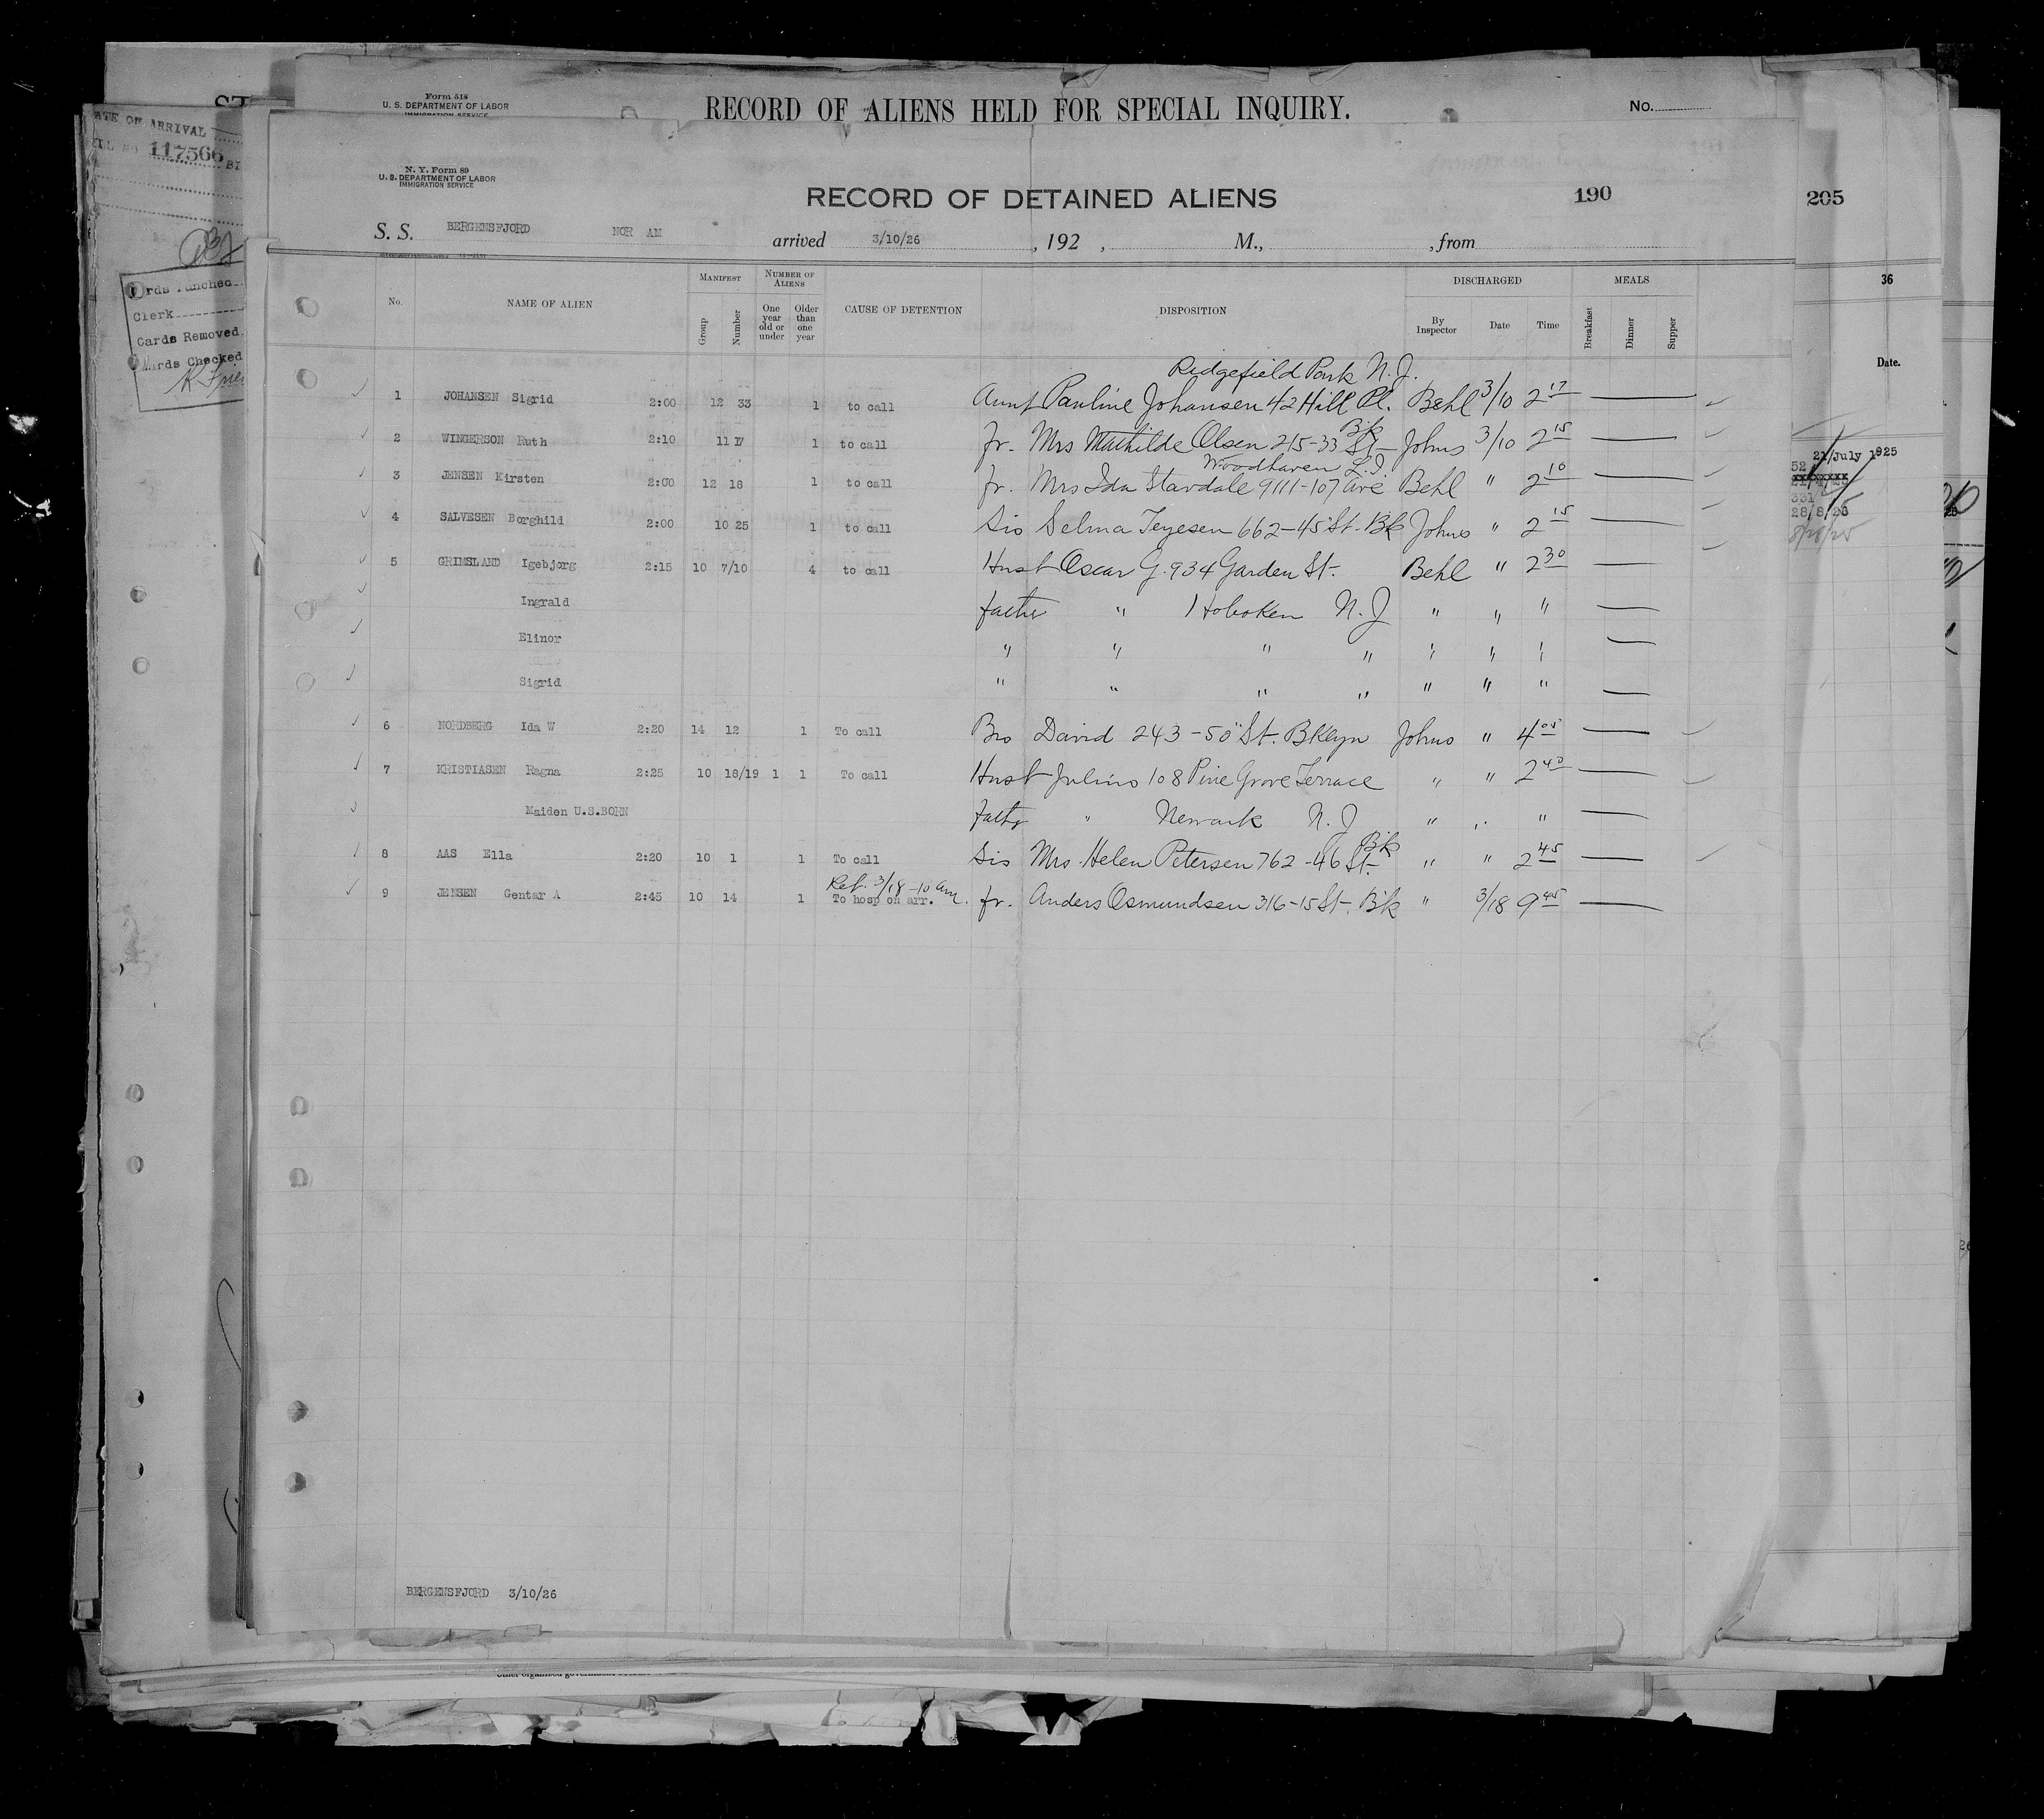 Form 518
U. S. DEPARTMENT OF LABOR
IMMIGRATION SERVICE
RECORD OF ALIENS HELD FOR SPECIAL INQUIRY.
No.
ATE OF ARRIVAL
117566
N. Y. Form 89
U. S. DEPARTMENT OF LABOR
IMMIGRATION SERVICE
RECORD OF DETAINED ALIENS
190
205
S. S. BERGENSFJORD NOR AM arrived 3/10/26, 192 , M., , from
rds Punched
Clerk
Cards Removed
Cards Checked
No. NAME OF ALIEN MANIFEST Group Number NUMBER OF ALIENS One year old or under Older than one year CAUSE OF DETENTION DISPOSITION DISCHARGED By Inspector Date Time MEALS Breakfast Dinner Supper
36
Date.
Ridgefield Park N.J.
1 JOHANSEN Sigrid 2:00 12 33 1 to call Aunt Pauline Johansen 42 Hill Pl. Behl 3/10 2 17
2 WINGERSON Ruth 2:10 11 17 1 to call fr. Mrs Mathilde Olsen 215-33 St Bk Johns 3/10 2 15
Woodhaven L.I.
3 JENSEN Kirsten 2:00 12 18 1 to call fr. Mrs Ida Stavdale 9111-107 ave Behl " 2 10
4 SALVESEN Borghild 2:00 10 25 1 to call Sis Selma Teyesen 662-45 St. Bk Johns " 2 15
5 GRIMSLAND Igebjorg 2:15 10 7/10 4 to call Husb Oscar G. 934 Garden St. Behl " 2 30
Ingrald father " Hoboken N.J " " "
Elinor " " " " " " "
Sigrid " " " " " " "
6 NORDBERG Ida W 2:20 14 12 1 To call Bro David 243-50" St. Bklyn Johns " 4 05
7 KRISTIASEN Ragna 2:25 10 18/19 1 1 To call Husb Julius 108 Pine Grove Terrace " " 2 40
Maiden U.S.BORN father " Newark N.J " " "
8 AAS Ella 2:20 10 1 1 To call Sis Mrs Helen Petersen 762-46 St. Bk " " 2 45
Ret. 3/18-10 am.
9 JENSEN Gentar A 2:45 10 14 1 To hosp on arr. fr. Anders Osmundsen 316-15 St. Bk " 3/18 9 45
21/July 1925
28/8/25
BERGENSFJORD 3/10/26